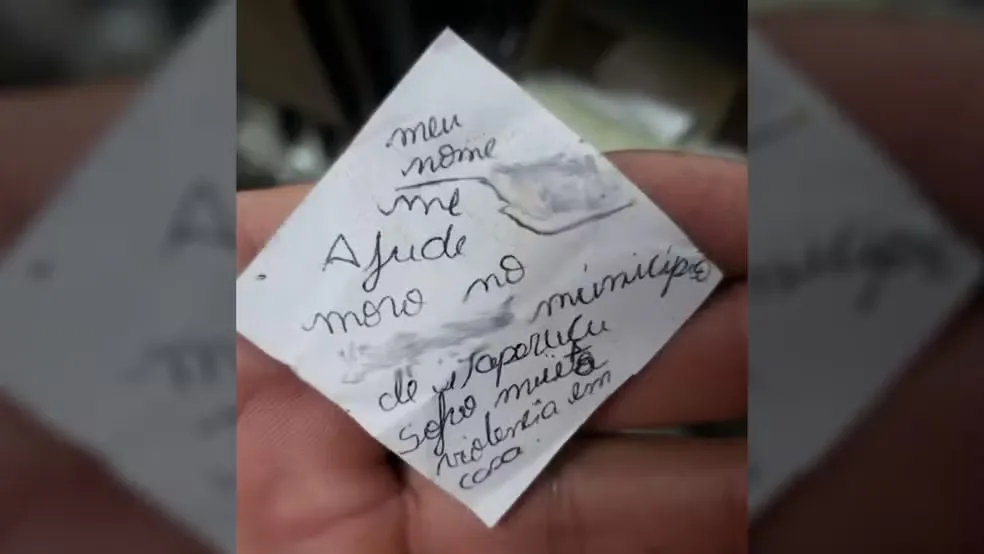 meu
nome
me
Ajude
moro no
município
de itaparucu
sofro muita
violencia em
casa.